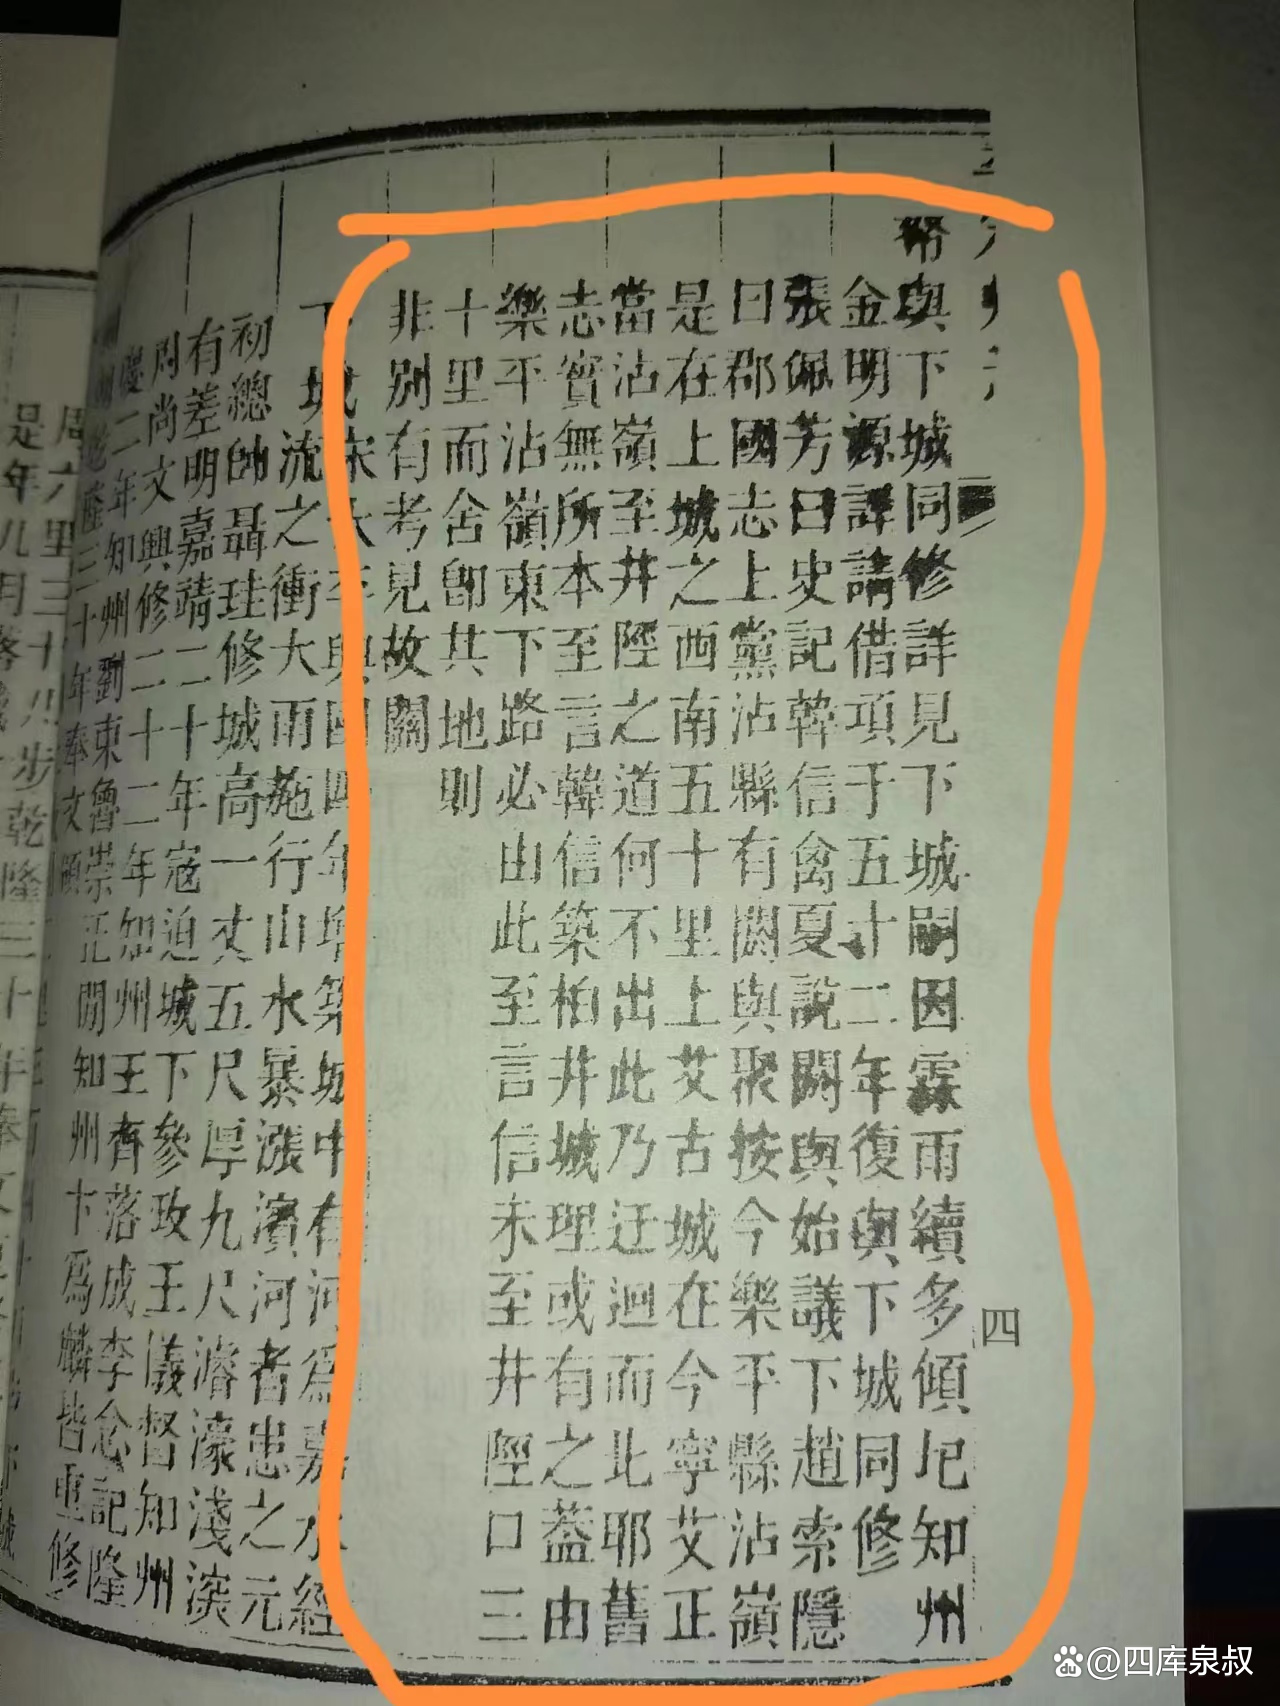 四
帑與下城同修詳見下城嗣因霖雨續多傾圮知州
金明源詳請借項于五十二年復與下城同修
張佩芳曰史記韓信禽夏說閼與始議下趙索隱
曰郡國志上黨沾縣有閼與聚按今樂平縣沾嶺
是在上城之西南五十里上艾古城在今寧艾正
當沾嶺至井陘之道何不出此乃迂迴而北耶舊
志實無所本至言韓信築柏井城理或有之蓋由
樂平沾嶺東下路必由此至言信未至井陘口三
十里而舍即其地則
非別有考見故關
下城宋太平興國四年增築城中有河為嘉水經
流之衝大雨施行山水暴漲濱河者患之元
初總帥聶珪修城高一丈五尺厚九尺濬濠淺深
有差明嘉靖二十年寇迫城下參政王儀督知州
周尚文興修二十二年知州王齊落成李念記隆
慶二年知州劉東魯崇正間知州卞為麟皆重修
乾隆三十年奉文
周六里三十八步乾隆三十年奉文
是年八月
@四库泉叔